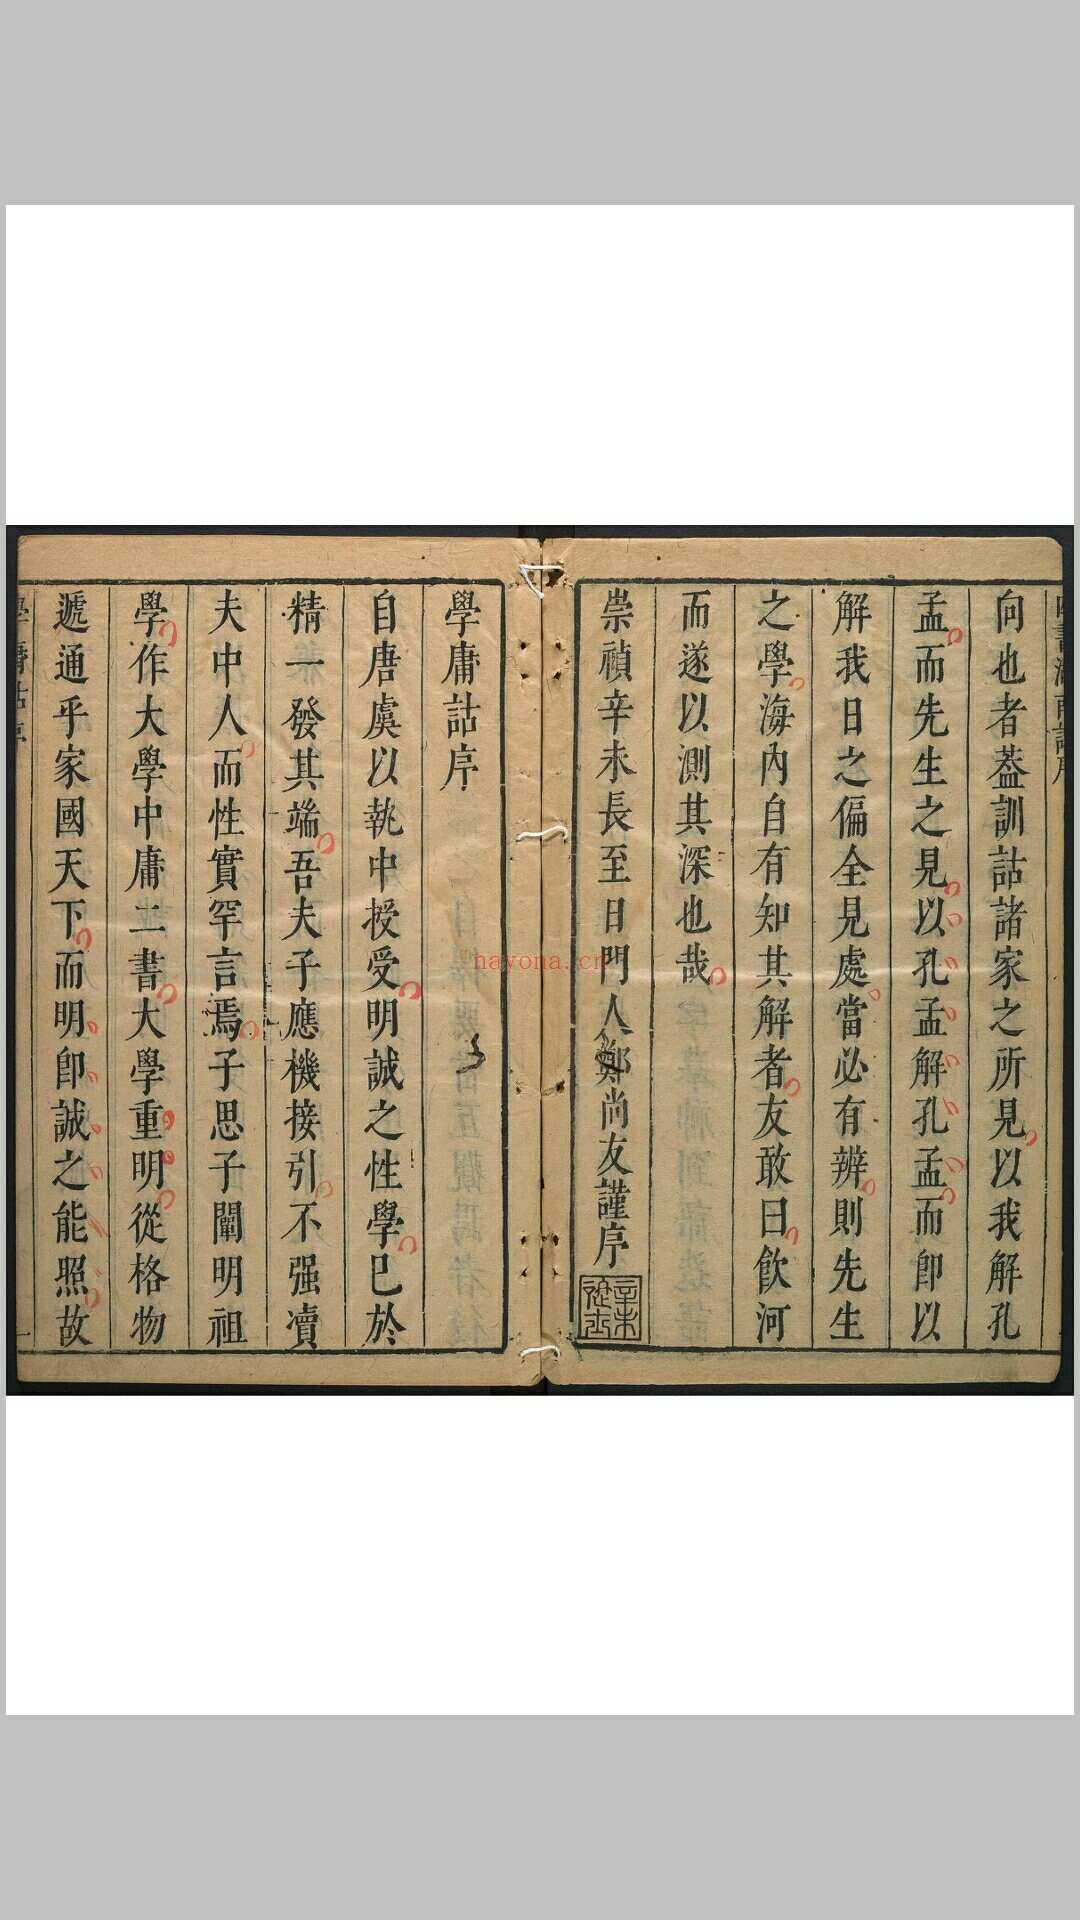 向也者葢訓詁諸家之所見以我解孔
孟而先生之見以孔孟解孔孟而卽以
解我日之偏全見處當必有辨則先生
之學海內自有知其解者友敢曰飮河
而遂以測其深也哉
崇禎辛未長至日門人鄭尚友謹序
學庸詁序
自唐虞以執中授受明誠之性學已於
精一發其端吾夫子應機接引不强瀆
夫中人而性實罕言焉子思子闡明祖
學作大學中庸二書大學重明從格物
遞通乎家國天下而明卽誠之能照故
學庸詁序
一
nayona.cn